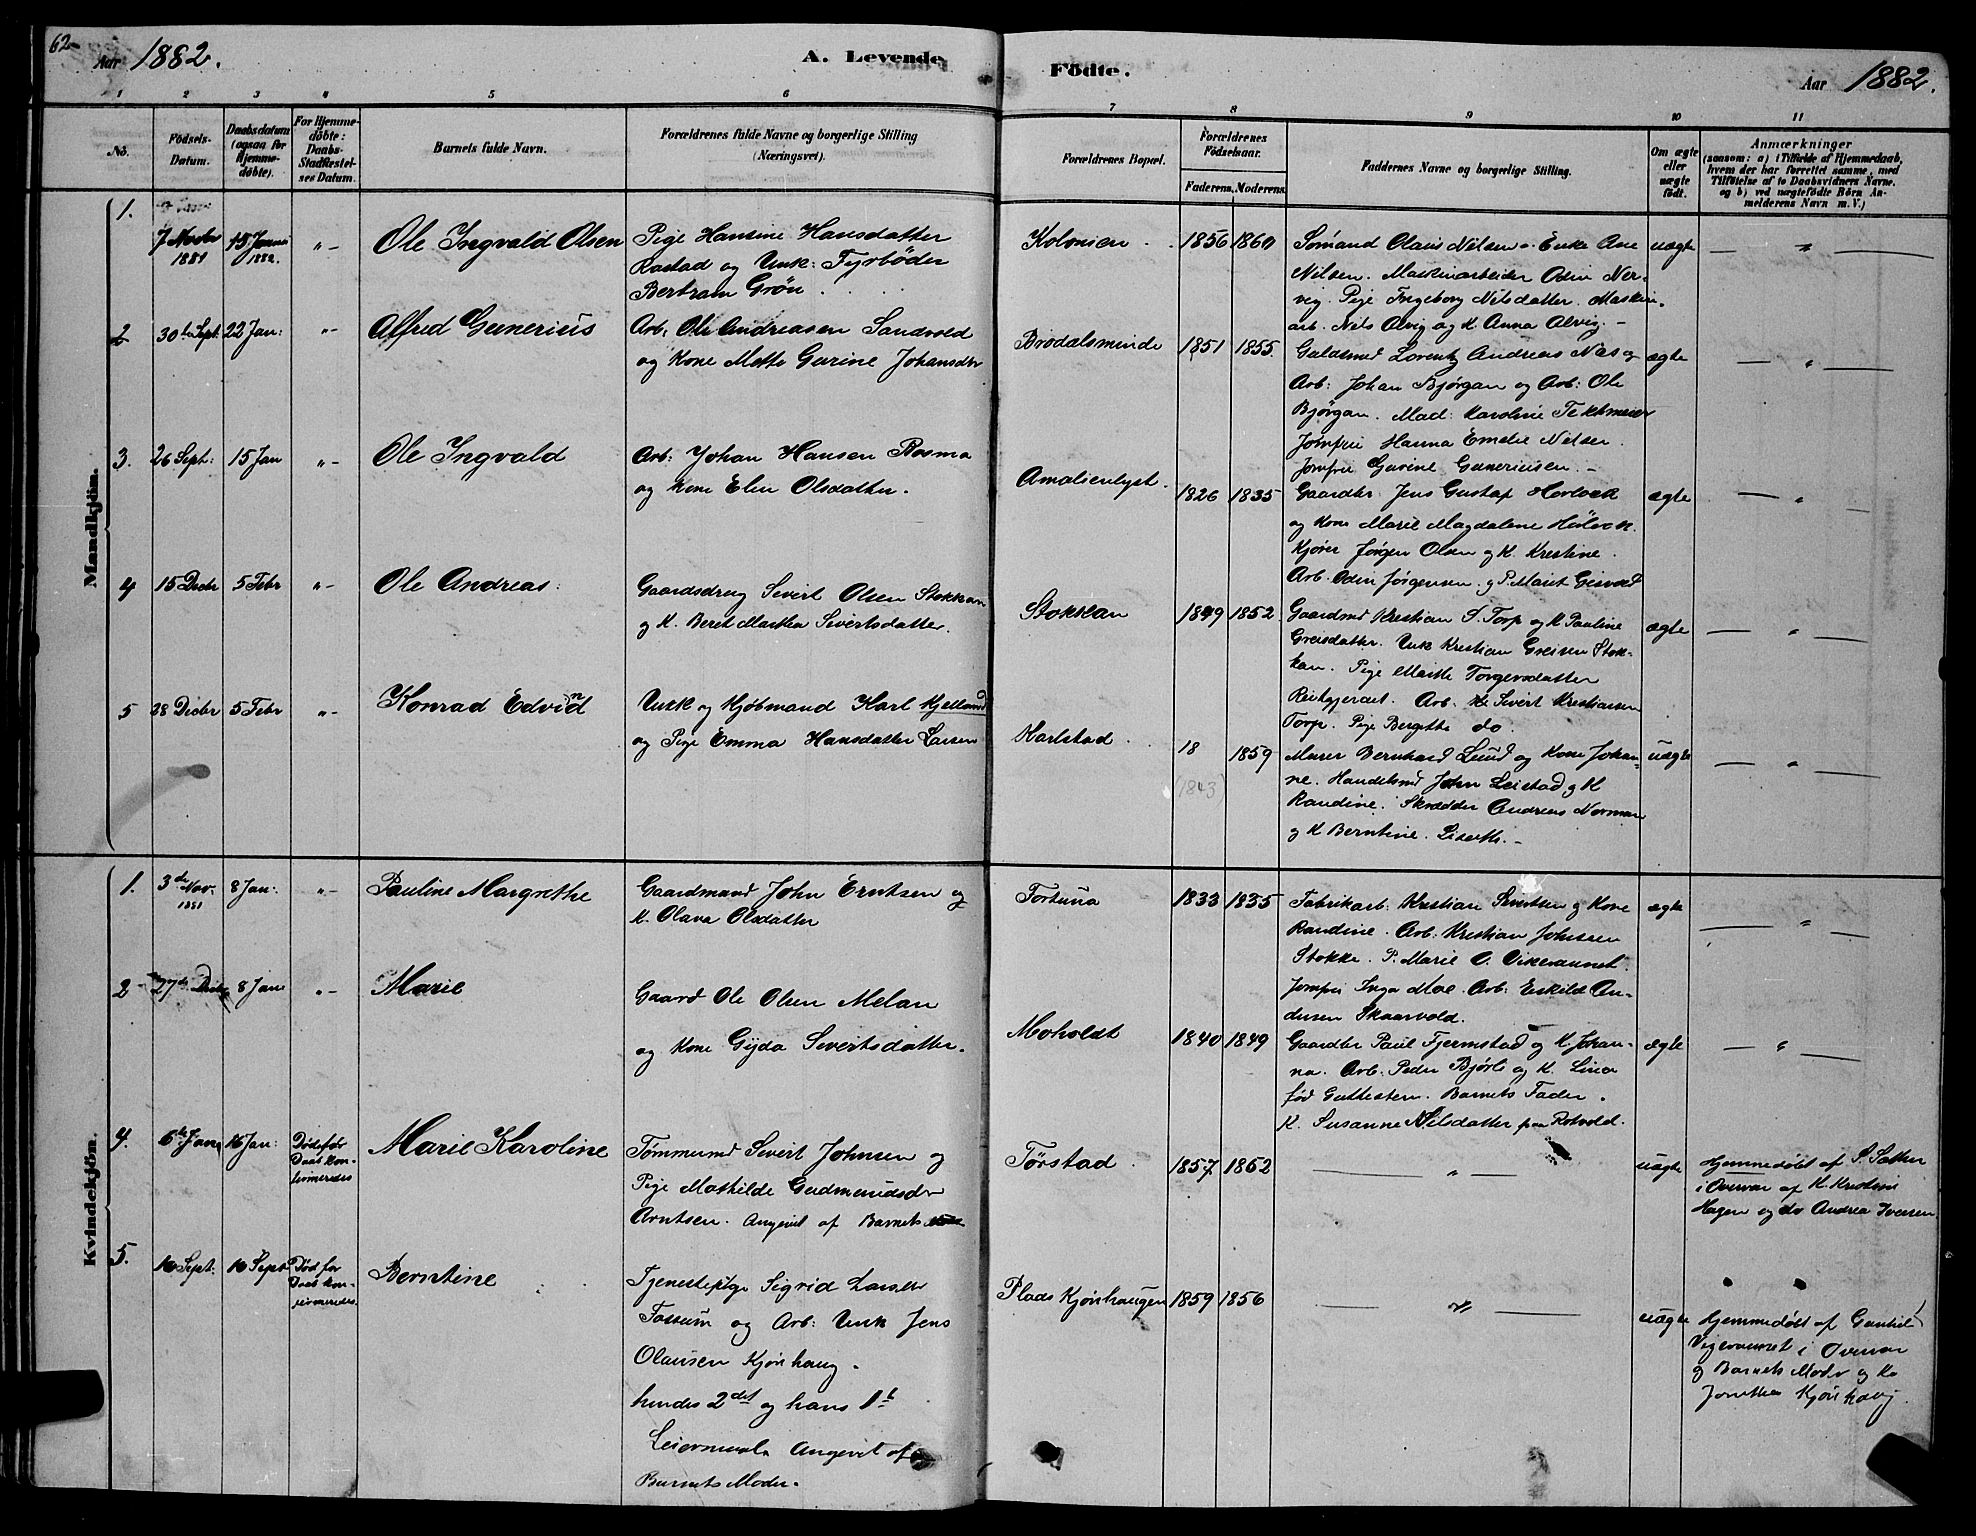 62
Aar 1882.
A. Levende Födte.
Aar 1882.
1 2 3 4 5 6 7 8 9 10 11
No.
Födsels-
Datum.
Daabsdatum
(ogsaa for
Hjemme-
döbte).
For Hjemme-
döbte:
Daabs-
Stadfæstel-
ses Datum.
Barnets fulde Navn.
Forældrenes fulde Navne og borgerlige Stilling
(Næringsvei).
Forældrenes Bopæl.
Forældrenes
Födselsaar.
Faderens. Moderens.
Faddernes Navne og borgerlige Stilling.
Om ægte
eller
uægte
født.
Anmærkninger
(saasom: a) i Tilfælde af Hjemmedaab,
hvem der har forrettet samme, med
Tilföielse af to Daabsvidners Navne.
og b) ved uægtefödte Börn An-
melderens Navn m. V.)
Mandkjön.
1.
7 Novbr
1881
15 Januar
1882.
"-
Ole Ingvald Olsen
Pige Hansine Hansdatter
Rastad og Unk: Fyrbøder
Bertram Grön
Kolonien
1856 1860
Sømand Olaus Nilsen. Enke Ane
Nilsen. Maskinarbeider Odin Ner-
vig. Pige Ingeborg Nilsdatter. Maskin-
arb. Nils Alvig og K. Anna Alvig. -
uægte
— " —
2
30te Sept: 22 Jan:
"-
Alfred Gunerius
Arb: Ole Andreasen Sandvold
og Kone Mette Gurine Johansdtr
Brodalsminde
1851 1855
Guldsmed Lorentz Andreas Næs og
Arb: Johan Bjørgan og Arb: Ole
Bjørgan. Mad: Karoline
Jomfru Hanna Emelie Nilsen.
Jomfru Gurine Guneriusen. -
ægte
— " —
3.
26 Sept: 15 Jan
"-
Ole Ingvald
Arb: Johan Hansen Rosmo
og Kone Elen Olsdatter.
Amalienlyst.
1826 1835
Gaardbr. Jens Gustaf
og Kone Marie Magdalene
Kjører Jørgen Olsen og K. Kristine.
Arb. Odin Jørgensen. og P. Marit
ægte
— " —
4
15 Decbr 5 Febr
"-
Ole Andreas.
Gaardsdreng Sivert Olsen Stokkan
og K. Beret Martha Sivertsdatter.
Stokkan
1849 1852
Gaardmd Kristian S. Torp og K Pauline
Greisdatter. Unk Kristian Greisen Stok-
kan. Pige Marit Torgersdatter
Arb. Sivert Kristiansen
Torp. Pige Bergitte do.
ægte
— " —
5
28 Decbr 5 Febr
"-
Konrad Edvin
Unk og Kjøbmand Karl Kjelland
og Pige Emma Hansdatter Larsen
Karlstad
18 1859
(1843)
Murer Bernhard Lund og Kone Johan-
ne. Handelsmd John Leistad og K
Randine. Skrædder Andreas Norman
og K Berntine. Lisette. -
uægte
— " —
Kvindekjön.
1.
3de Nov.
1881
8 Jan:
"-
Pauline Margrethe
Gaardmand John Erntsen og
K. Olava Olsdatter
Fortuna
1833 1835
Fabrikarb: Kristian Sivertsen og Kone
Randine. Arb: Kristian Johnsen
Stokke. P. Marie O. Vikeraunet.
Jomfru Inga Moe. Arb: Eskild An-
dersen Skaarvold.
ægte
— " —
2
27de Decbr 8 Jan
"-
Marie
Gaard Ole Olsen Melan
og Kone Gyda Sivertsdatter.
Moholdt
1840 1849
Gaardbr Paul Fjermstad og K. Johan-
na. Arb: Peder Bjørli og K. Lina
fød Guttesten. Barnets Fader.
K. Susanne Nilsdatter paa Rotvold.
ægte
— " —
4.
6te Jan 16 Jan:
Døde før
Daab kon-
firmeredes
Marie Karoline
Tømmermd Sivert Johnsen og
Pige Mathilde Gudmundsdr
Arntsen. Angivet af Barnets
Tørstad
1857 1862
— " —
uægte
Hjemmedøbt af S. Sæther
i Overvær af K. Kristine
Hagen og do Andrea Iversen.
5.
10 Sept: 10 Sept
Død før
Daab kon-
firmeredes.
Berntine
Tjenestepige Sigrid Larsdtr
Fossum og Arb: Unk Jens
Olausen Kjønhaug.
hendes 2det og hans 1te
Leiermaal Angivet af
Barnets Moder.
Plads Kjønhaugen
1859 1856
— " —
uægte
Hjemmedøbt af Gunhild
Vigeraunet i Overvær
af Barnets Moder og Ko
Jonetha Kjønhaug.